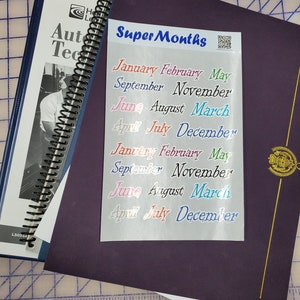 SuperMonths
January February May
September November
June August March
April July December
January February May
September November
June August March
April July December
Auto
Tec